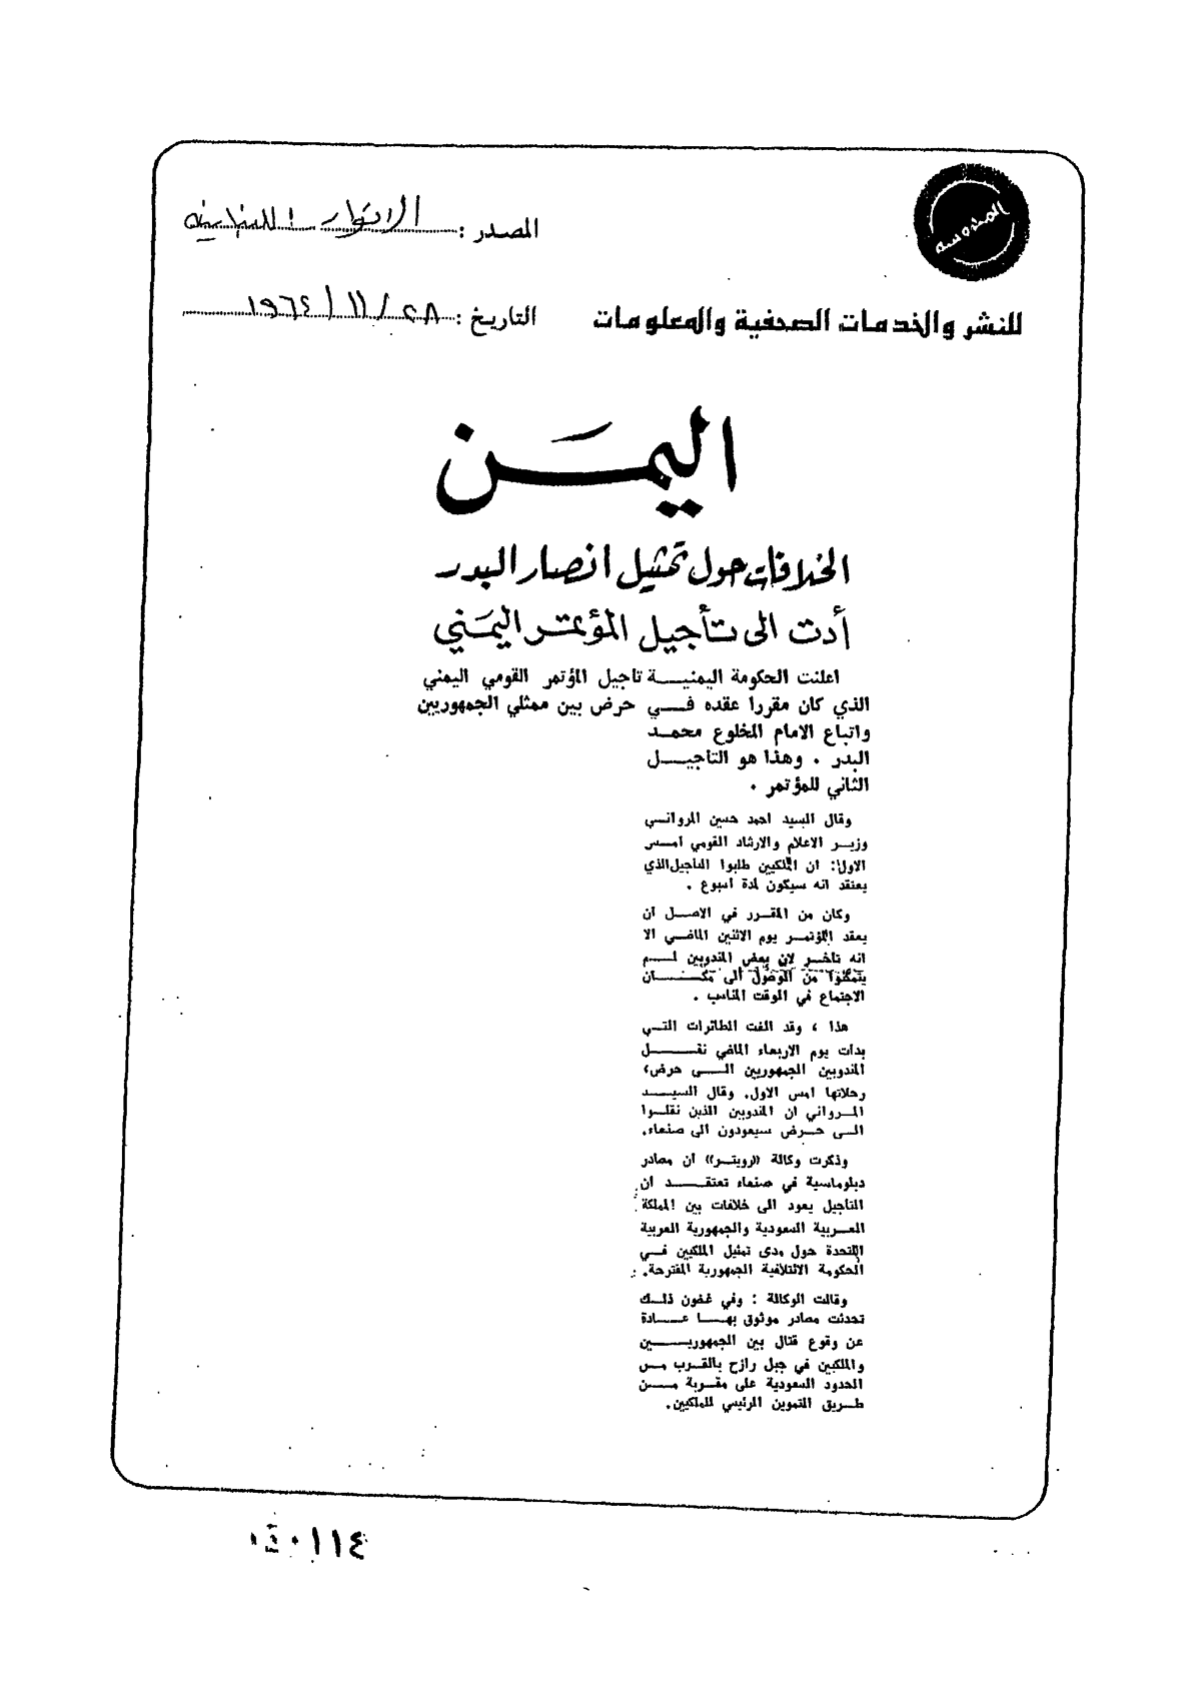 المدوسه
المصدر : الانوار اللبنانية
للنشر والخدمات الصحفية والمعلومات
التاريخ : ٢٨ / ١١ / ١٩٦٤
اليمن
الخلافات حول تمثيل انصار البدر
أدت الى تأجيل المؤتمر اليمني
اعلنت الحكومة اليمنية تاجيل المؤتمر القومي اليمني
الذي كان مقررا عقده في حرض بين ممثلي الجمهوريين
واتباع الامام المخلوع محمد
البدر . وهذا هو التاجيل
الثاني للمؤتمر .
وقال السيد احمد حسين المرواني
وزير الاعلام والارشاد القومي امس
الاول: ان الملكيين طلبوا التاجيل الذي
يعتقد انه سيكون لمدة اسبوع .
وكان من المقرر في الاصل ان
يعقد المؤتمر يوم الاثنين الماضي الا
انه تاخر لان بعض المندوبين لم
يتمكنوا من الوصول الى مكان
الاجتماع في الوقت المناسب .
هذا ، وقد الغت الطائرات التي
بدات يوم الاربعاء الماضي نقل
المندوبين الجمهوريين الى حرض،
رحلاتها امس الاول. وقال السيد
المرواني ان المندوبين الذين نقلوا
الى حرض سيعودون الى صنعاء.
وذكرت وكالة «رويتر» ان مصادر
دبلوماسية في صنعاء تعتقد ان
التاجيل يعود الى خلافات بين المملكة
العربية السعودية والجمهورية العربية
المتحدة حول مدى تمثيل الملكيين في
الحكومة الائتلافية الجمهورية المقترحة.
وقالت الوكالة : وفي غضون ذلك
تحدثت مصادر موثوق بها عادة
عن وقوع قتال بين الجمهوريين
والملكيين في جبل رازح بالقرب من
الحدود السعودية على مقربة من
طريق التموين الرئيسي للملكيين.
٠١١٤